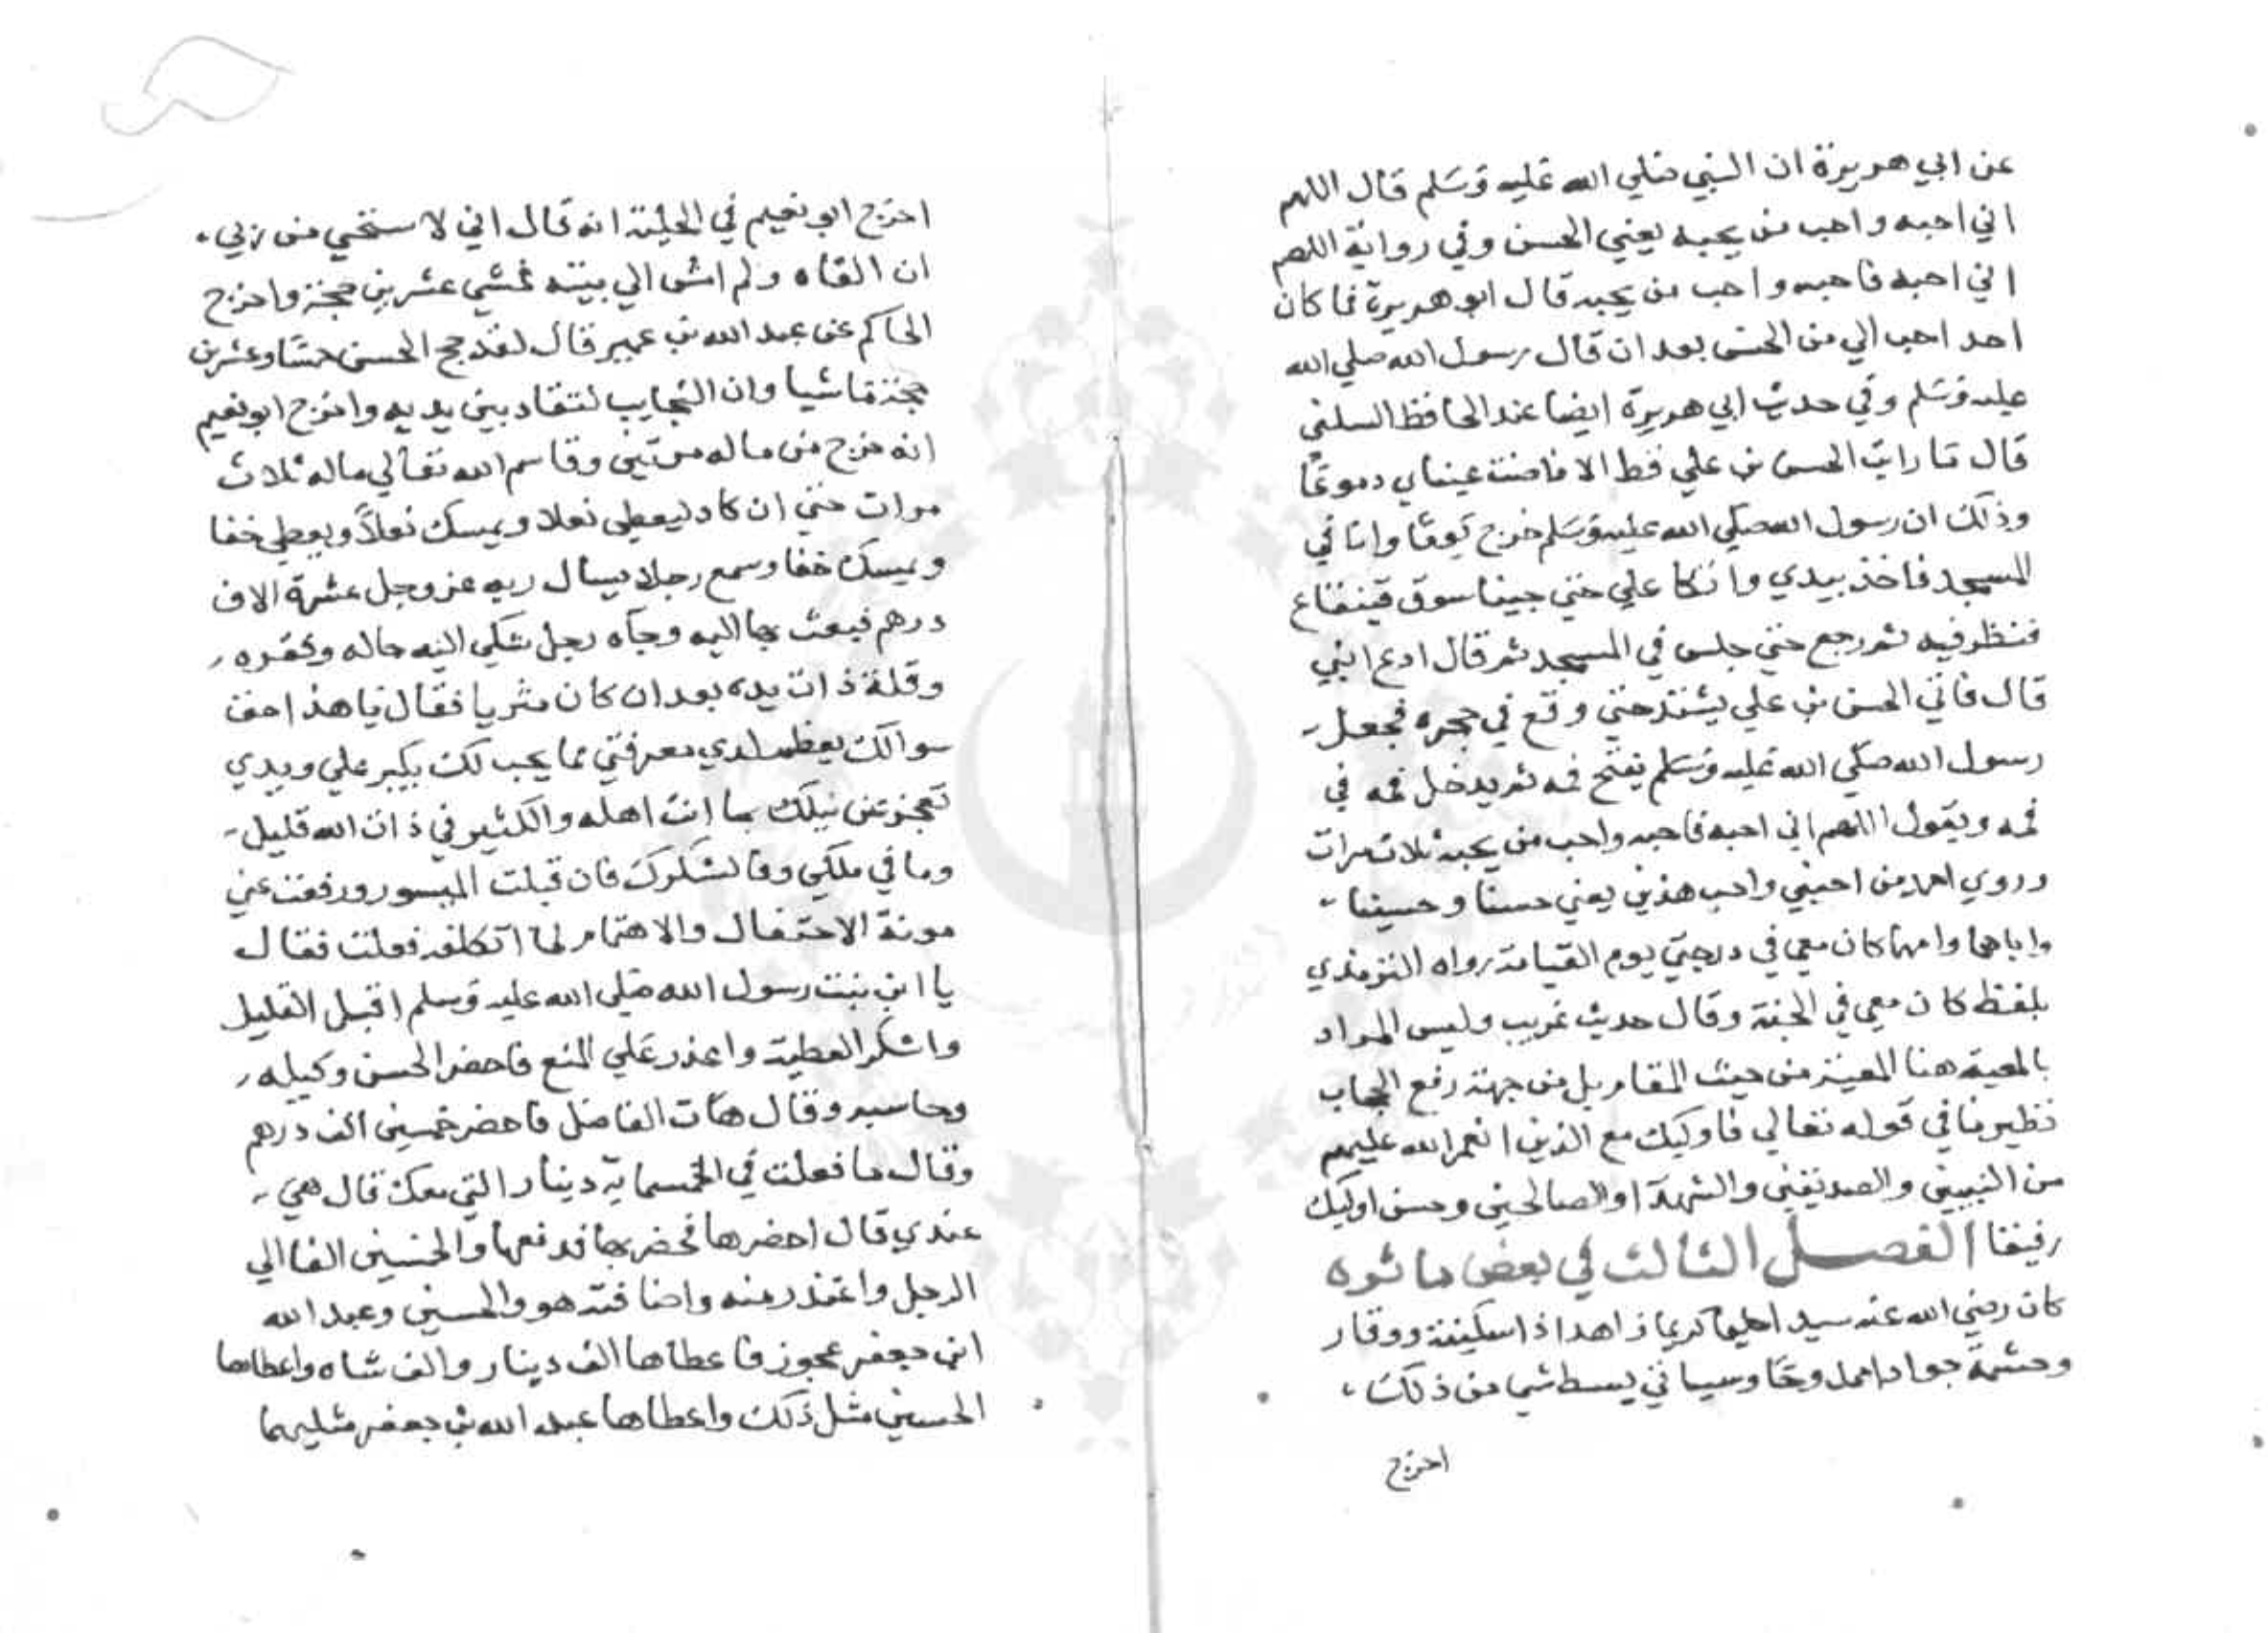 عن ابي هريرة ان النبي صلي الله عليه وسلم قال اللهم
اني احبه واحب من يحبه يعني الحسن وفي رواية اللهم
اني احبه فاحبه واحب من يحبه قال ابو هريرة فما كان
احد احب الي من الحسن بعد ان قال رسول الله صلي الله
عليه وسلم وفي حديث ابي هريرة ايضا عند الحافظ السلفي
قال ما رايت الحسن بن علي قط الا فاضت عيناي دموعا
وذلك ان رسول الله صلي الله عليه وسلم خرج يوما وانا في
المسجد فاخذ بيدي واتكا علي حتي جينا سوق قينقاع
فنظر فيه ثم رجع حتي جلس في المسجد ثم قال ادع ابني
قال فاتي الحسن بن علي يشتد حتي وقع في حجره فجعل
رسول الله صلي الله عليه وسلم يفتح فمه ثم يدخل فمه في
فمه ويقول اللهم اني احبه فاحبه واحب من يحبه ثلاث مرات
وروي احمد من احبني واحب هذين يعني حسنا وحسينا
واباهما وامهما كان معي في درجتي يوم القيامة رواه الترمذي
بلفظ كان معي في الجنة وقال حديث غريب وليس المراد
بالمعية هنا المعية من حيث المقام بل من جهة رفع الحجاب
نظير ما في قوله تعالي فاوليك مع الذين انعم الله عليهم
من النبيين والصديقين والشهدآ والصالحين وحسن اوليك
رفيقا الفصل الثالث في بعض ماثره
كان رضي الله عنه سيدا حليما كريما زاهدا ذا سكينة ووقار
وحشمة جوادا ممدوحا وسياتي بسط شي من ذلك
اخرج
اخرج ابو نعيم في الحلية انه قال اني لاستحي من ربي
ان القاه ولم امش الي بيته فمشي عشرين حجة واخرج
الحاكم عن عبد الله بن عمير قال لقد حج الحسن خمسا وعشرين
حجة ماشيا وان النجايب لتقاد بين يديه واخرج ابو نعيم
انه خرج من ماله مرتين وقاسم الله تعالي ماله ثلاث
مرات حتي ان كاد ليعطي نعلا ويمسك نعلاً ويعطي خفا
ويمسك خفا وسمع رجلا يسال ربه عز وجل عشرة الاف
درهم فبعث بها اليه وجآه رجل شكي اليه حاله وفقره
وقلة ذات يده بعد ان كان مثريا فقال يا هذا حق
سوالك يعظم لدي معرفتي بما يجب لك يكبر علي ويدي
تعجز عن نيلك بما انت اهله والكثير في ذات الله قليل
وما في ملكي وفا لشكرك فان قبلت الميسور ورفعت عني
مونة الاحتفال والاهتمام لما اتكلفه فعلت فقال
يا ابن بنت رسول الله صلي الله عليه وسلم اقبل القليل
واشكر العطية واعذر علي المنع فاحضر الحسن وكيله
وحاسبه وقال هات الفاضل فاحضر خمسين الف درهم
وقال ما فعلت في الخمسماية دينار التي معك قال هي
عندي قال احضرها فحضر بها فدفعها والخمسين الفا الي
الرجل واعتذر منه واضافته هو والحسين وعبد الله
ابن جعفر عجوز فاعطاها الف دينار والف شاه واعطاها
الحسين مثل ذلك واعطاها عبد الله بن جعفر مثليهما